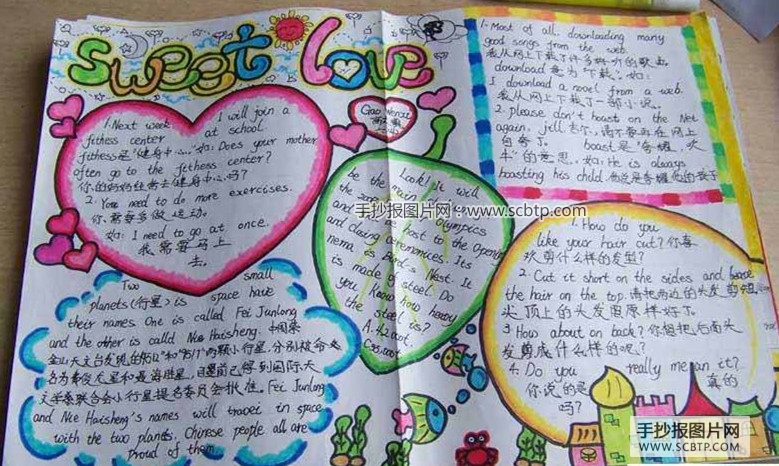 sweet love
1. Next week I will join a
fitness center at school.
fitness是"健身中心". 如: Does your mother
often go to the fitness center?
你的妈妈经常去健身中心吗?
2. You need to do more exercises.
你需要多做运动.
如: I need to go at once.
我需要马上
去.
Gao
Look! It will
be the main Olympics
and be host to the Opening
and closing ceremonies. Its
nema is Bird's Nest. It
is made of steel. Do
you know how heavy
the steel is?
A. 42,000t.
1. Most of all downloading many
good songs from the web.
我从网上下载了许多好听的歌曲
download 意为"下载". 如:
I download a novel from a web.
我从网上下载了一部小说.
2. please don't boast on the Net
again, jill 吉尔, 请不要再在网上
自夸了. boast是"夸耀, 吹
牛"的意思. 如: He is always
boasting his child 他总是夸耀他的孩子
1. How do you
like your hair cut? 你喜
欢剪什么样的发型?
2. Cut it short on the sides and leave
the hair on the top. 请把两边的头发剪短
头顶上的头发照原样好了.
3. How about on back? 你想把后面头
发剪成什么样的呢?
4. Do you really mean it?
你说的是 真的
吗?
Two small
planets (行星) is space have
their names. One is called Fei Junlong
and the other is called Nie Haisheng. 中国紫
金山天文台发现的两颗小行星, 分别被命
名为费俊龙星和聂海胜星, 日前已得到国际天
文学家联合会小行星提名委员会批准. Fei Junlong
and Nie Haisheng's names will travel in space
with the two planets. Chinese people all are
proud of them.
手抄报图片网:www.scbtp.com
手抄报图片网
WWW.SCBTP.COM